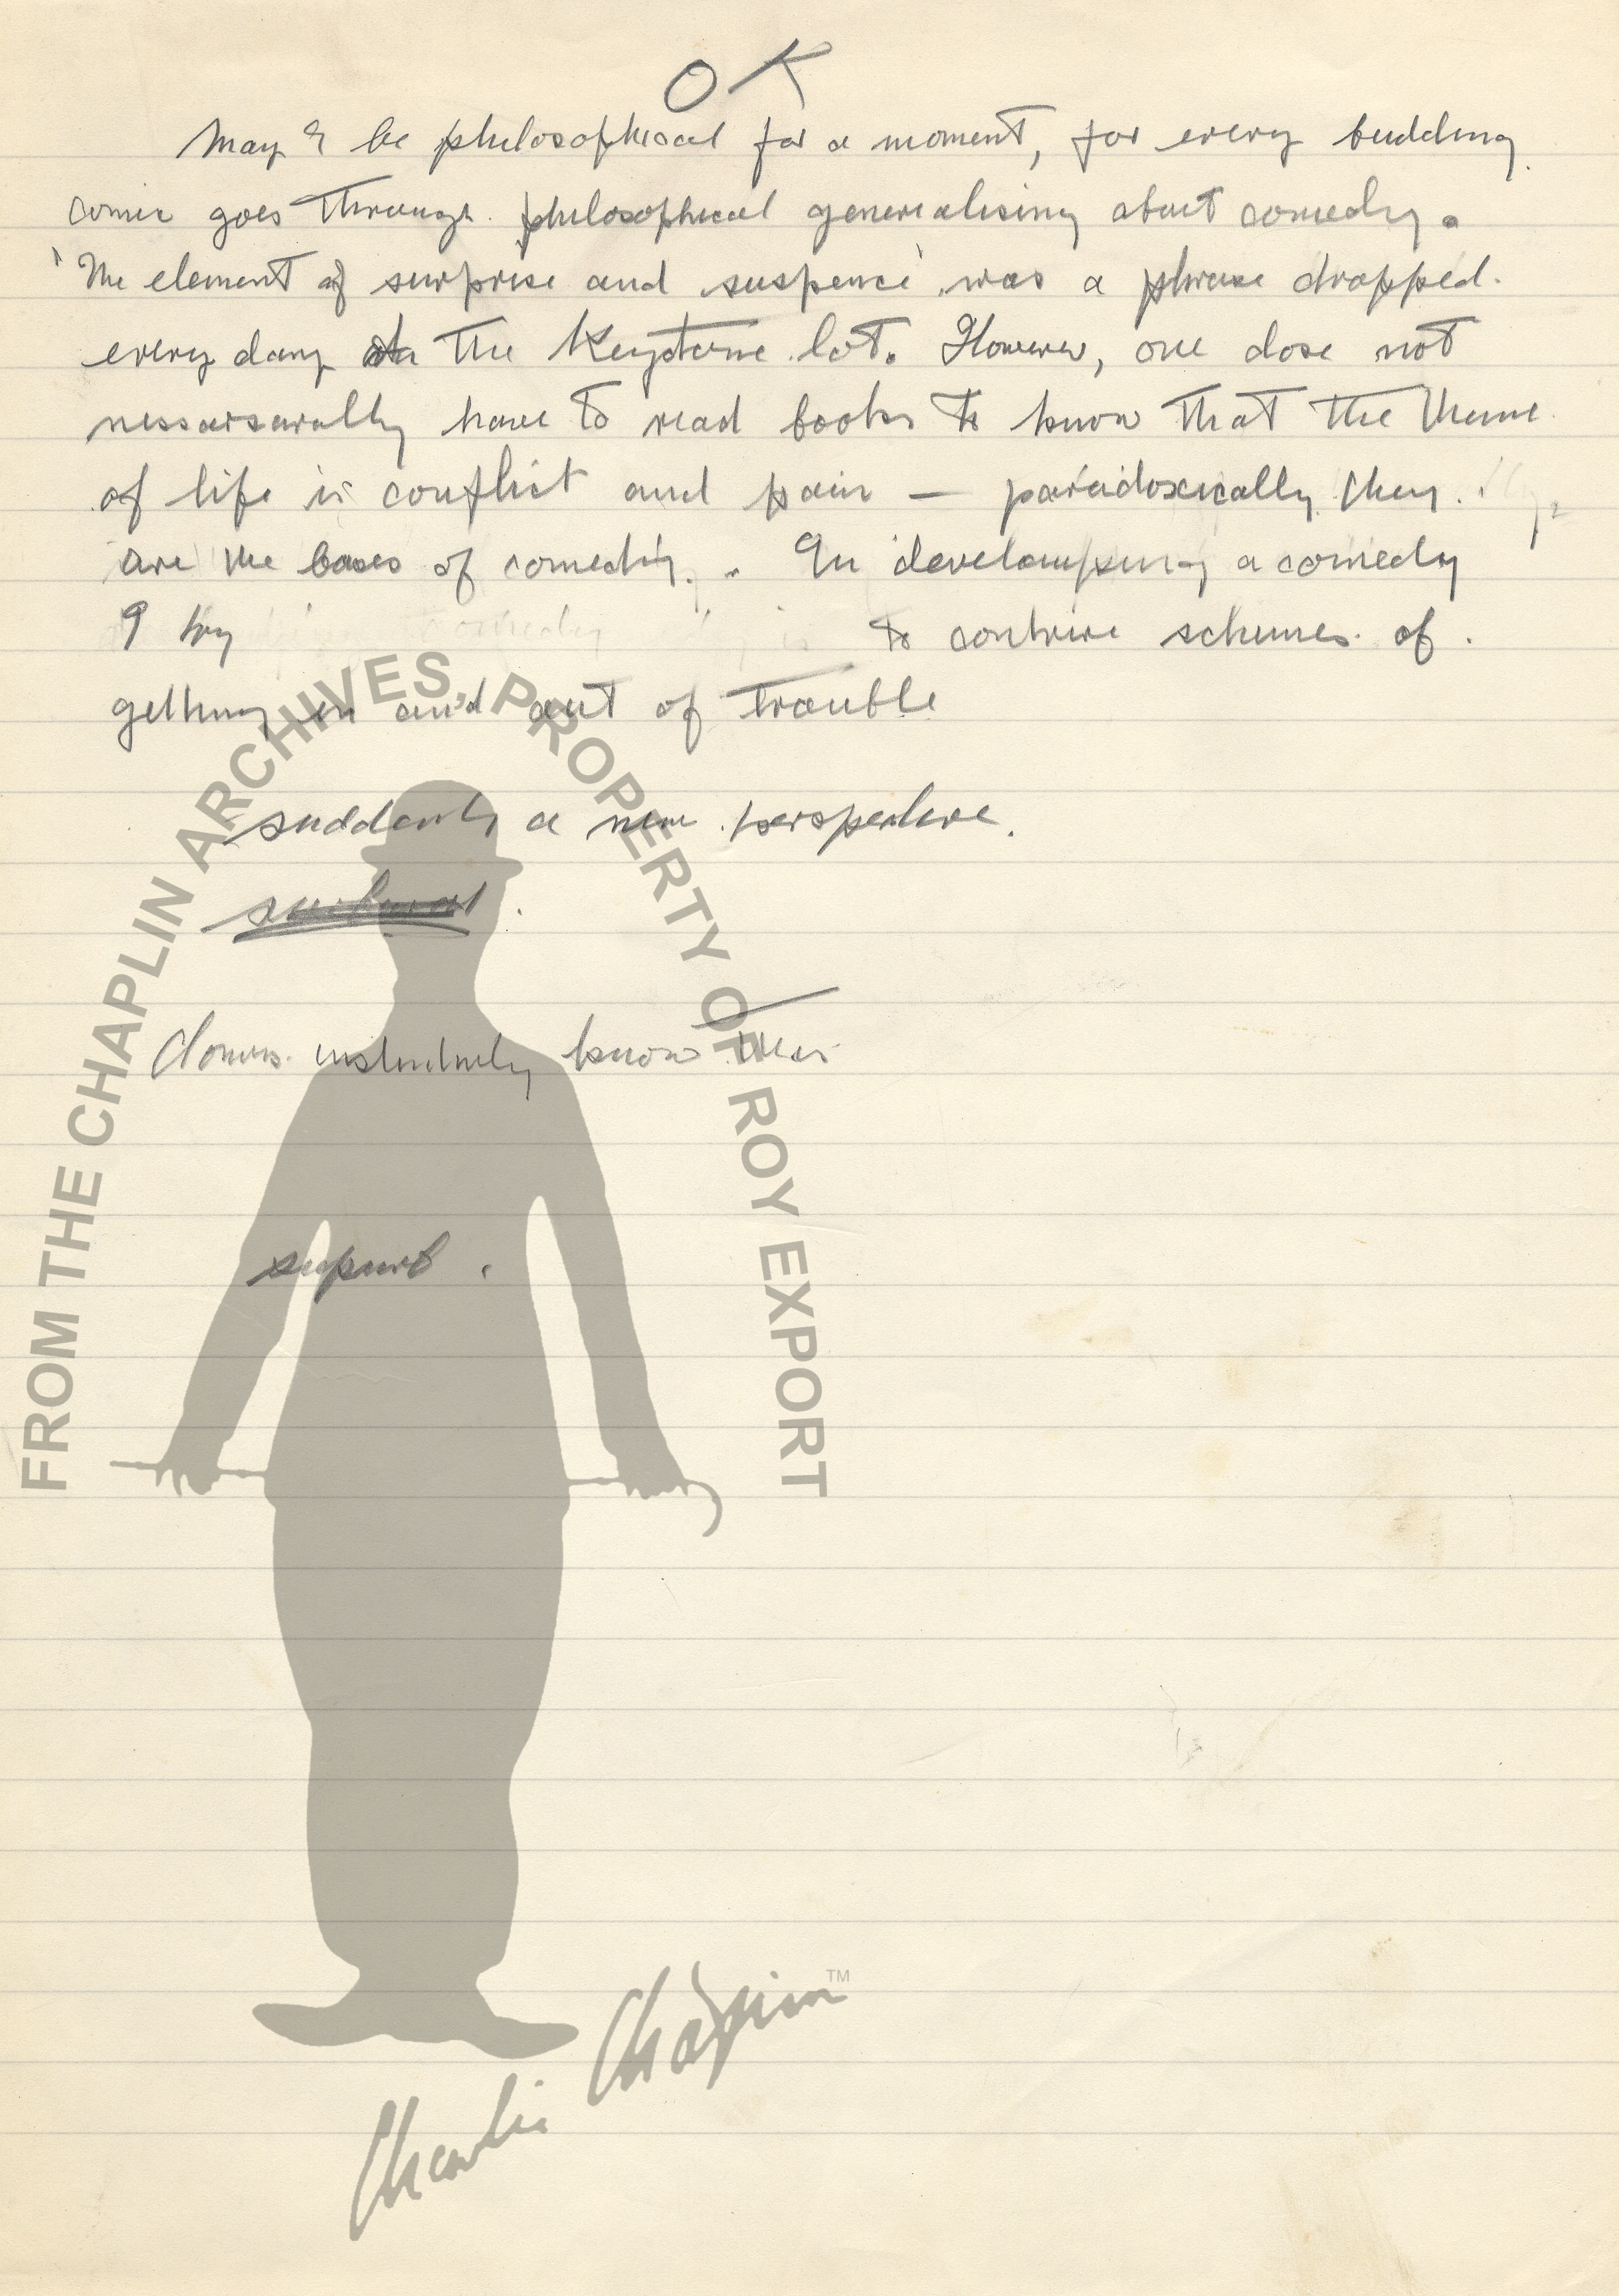 OK
May I be philosophical for a moment, for every budding
comic goes through philosophical generalising about comedy.
'The element of surprise and suspence' was a phrase dropped
every day on the Keystone lot. However, one dose not
nessarsarally have to read books to know that the theme
of life is conflict and pain — paradoxically they
are the bases of comedy. In develampsing a comedy
I try to contrive schemes of
getting in and out of trouble
suddenly a new perspective.
Clowns instinctively know this
FROM THE CHAPLIN ARCHIVES, PROPERTY OF ROY EXPORT
Charlie Chaplin™